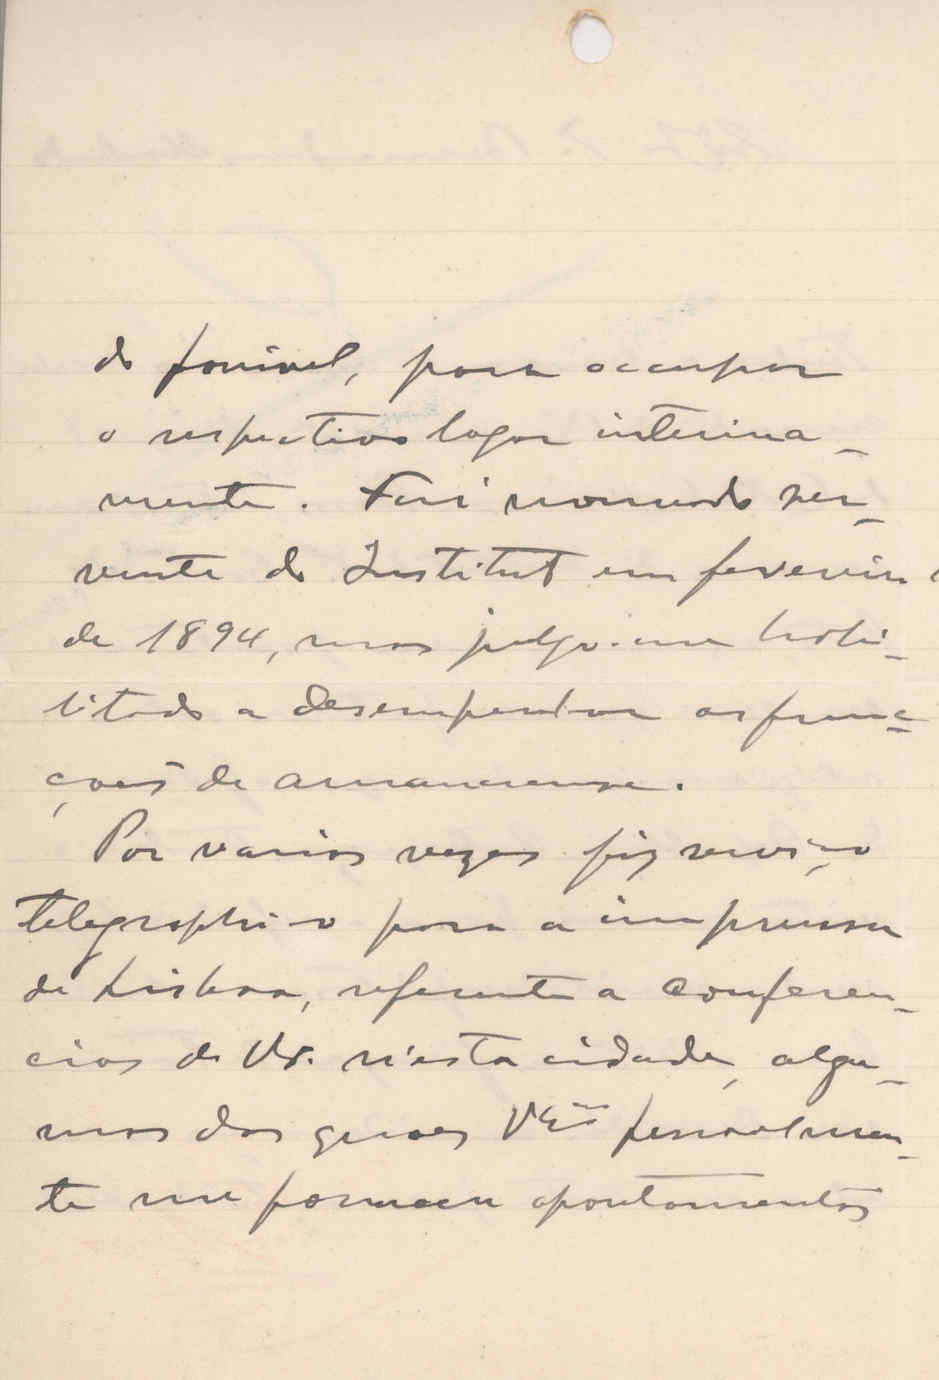 do possivel, para occupar
o respectivo logar interina-
mente. Fui nomeado ser-
vente do Instituto em fevereiro
de 1894, mas julgo-me habi-
litado a desempenhar as func-
ções de amanuense.
Por varias vezes fiz serviço
telegraphico para a imprensa
de Lisboa, referente a conferen-
cias de V. n'esta cidade, algu-
mas das quaes pessoalmen-
te me forneceu apontamentos